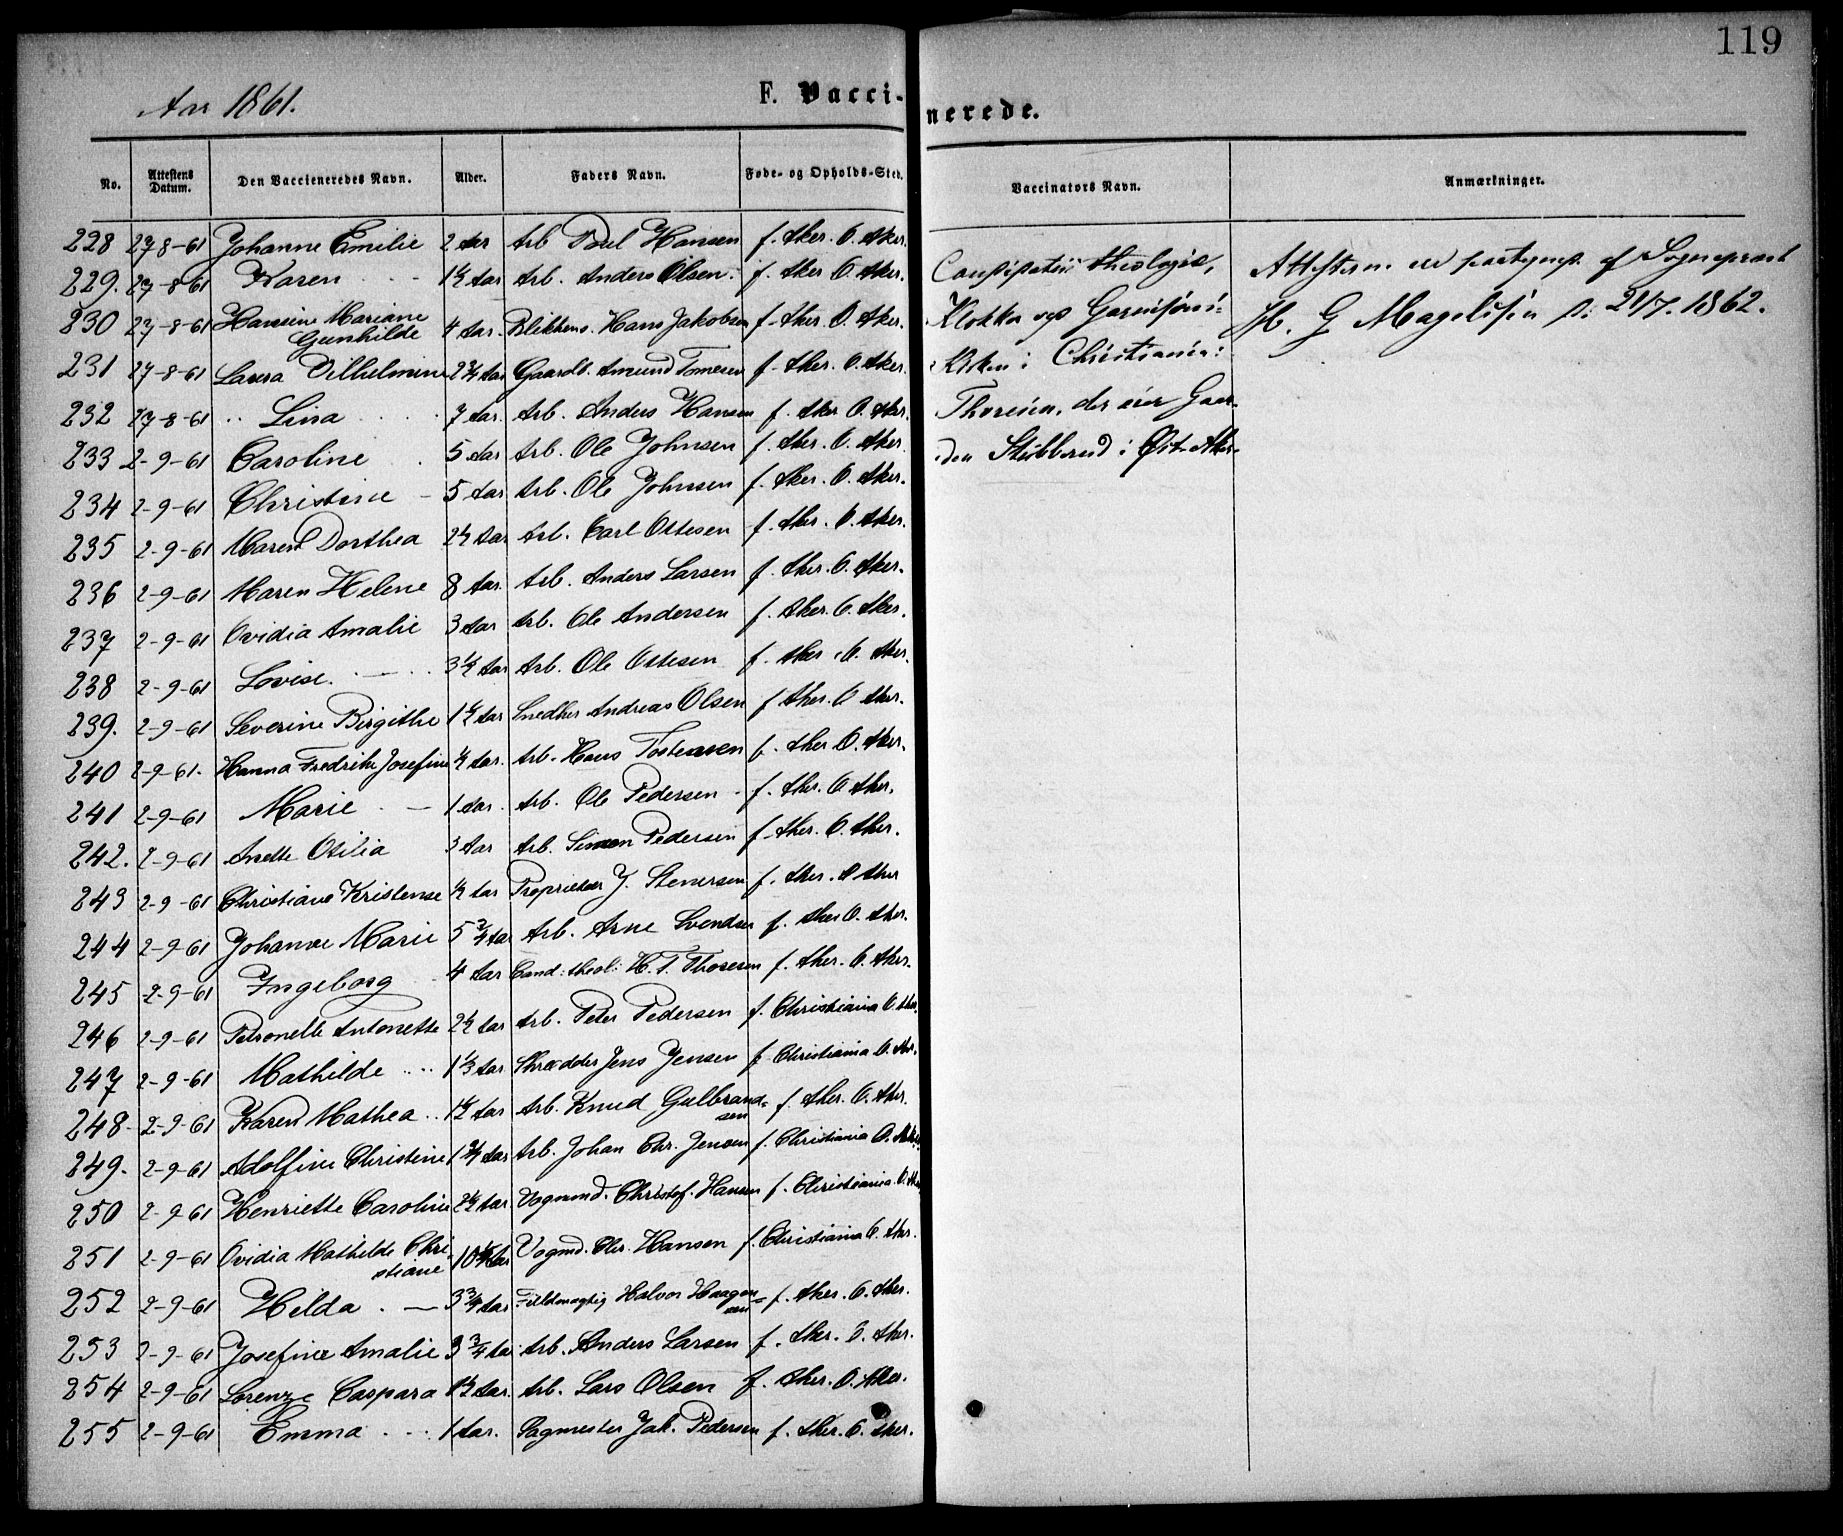 119
Aar 1861.
F. Vacci-
nerede.
No. Attestens Datum. Den Vaccieneredes Navn. Alder. Faders Navn. Føde- og Opholds-Sted. Vaccinators Navn. Anmærkninger.
228 27-8-61 Johanne Emilie 2 Aar Arb Poul Hansen f. Aker. O. Aker.
229. 27-8-61 Karen 1½ Aar Arb. Anders Olsen f. Aker O. Aker.
230 27-8-61 Hansine Mariane Gunhilde 4 Aar. Blikkens. Hans Jakobsen f. Aker. O. Aker.
231 27-8-61 Laura Vilhelmine 2¾ Aar Gaardb. Amund Tomesen f. Aker. O. Aker.
232 27-8-61 Lina 7 Aar. Arb. Anders Hansen f. Aker O. Aker.
233 2-9-61 Caroline 5 Aar Arb. Ole Johnsen f. Aker. O. Aker.
234 2-9-61 Christine 5 Aar Arb. Ole Johnsen f. Aker. O. Aker.
235 2-9-61 Maren Dorthea 2½ Aar Arb. Carl Ottesen f. Aker. O. Aker.
236 2-9-61 Maren Helene 8 Aar. Arb. Anders Larsen f. Aker. O. Aker.
237 2-9-61 Ovidia Amalie 3 Aar Arb. Ole Andersen f. Aker. O. Aker.
238 2-9-61 Lovise. 3½ Aar Arb. Ole Ottesen f. Aker. O. Aker.
239. 2-9-61 Severine Birgithe 1½ Aar Snedker Andreas Olsen f Aker. O Aker.
240 2-9-61. Hanna Fredrike Josefine ½ Aar. Arb. Hans Tostensen f. Aker O. Aker.
241 2-9-61 Marie 1 Aar. Arb. Ole Pedersen f. Aker. O Aker.
242. 2-9-61 Anette Otilia 3 Aar Arb. Simon Pedersen f. Aker. O. Aker.
243 2-9-61 Christiane Kristense ½ Aar Proprietær J. Stenersen f. Aker. O Aker
244 2-9-61 Johanne Marie 5¾ Aar Arb. Arne Svendsen f. Aker O. Aker.
245 2-9-61 Ingeborg 4 Aar Cand: theol: H. T. Thoresen f. Aker. O. Aker.
246 2-9-61 Petronelle Antonette 2½ Aar Arb. Peter Pedersen f. Christiania O Aker.
247 2-9-61 Mathilde 1⅓ Aar Skrædder Jens Jensen f. Christiania O. Aker.
248. 2-9-61 Karen Mathea 1½ Aar Arb. Knud Gulbrandsen f. Aker. O. Aker.
249. 2-9-61 Adolfine Christine 1¾ Aar Arb. Johan Chr. Jensen f. Christiania O. Aker
250 2-9-61 Henriette Caroline 2½ Aar Vogmand. Christof. Hansen f. Christiania. O. Aker
251 2-9-61 Ovidia Mathilde Christiane 10½ Aar Vogmd. Chr. Hansen f. Christiania O. Aker.
252 2-9-61 Hilda 3¾ Aar Fuldmægtig Halvor Haagensen f. Aker. O. Aker.
253 2-9-61 Josefine Amalie 3¾ Aar Arb. Anders Larsen f. Aker. O. Aker.
254 2-9-61 Lorenze Caspara 1½ Aar. Arb. Lars Olsen f. Aker. O. Aker.
255 2-9-61 Emma 1 Aar. Sagmester Jak. Pedersen f. Aker. O. Aker.
theologiæ,
Klokker ved Garnisons:
kirken i Christiania:
Thoresen, der eier Gaar-
den Stubberud i Østre Aker.
Attesterne ere paategnet af Sogneprest
H. G Magelssen d: 21/7. 1862.